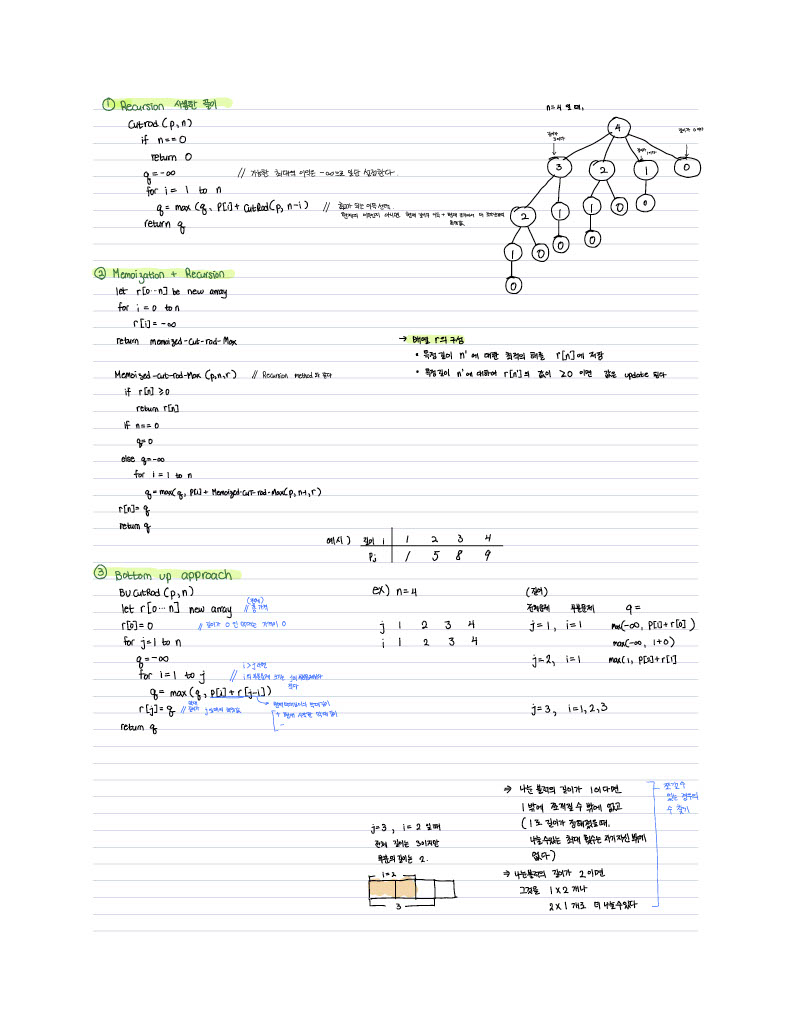 ① Recursion 사용한 풀이
Cutrod (p, n)
if n == 0
return 0
q = -∞ // 가능한 최대의 이익은 -∞으로 일단 설정한다.
for i = 1 to n
q = max (q, p[i] + CutRod(p, n-i) //
return q
n=4 일 때,
4
3 2 1 0
2 1 1 0 0
1 0 0 0
0
② Memoization + Recursion
let r[0…n] be new array
for i = 0 to n
r[i] = -∞
return memoized-Cut-rod-Max
→ 배열 r의 구성
• 특정 길이 n'에 대한 최적의 해를 r[n]에 저장
• 특정 길이 n'에 대하여 r[n']의 값이 ≥0 이면 값은 update 된다
Memoized-cut-rod-Max (p,n,r) // Recursion method와 같다
if r[n] ≥ 0
return r[n]
if n == 0
q = 0
else q = -∞
for i = 1 to n
q = max(q, p[i] + Memoized-cut-rod-Max(p, n-i, r)
r[n] = q
return q
예시) 길이 i 1 2 3 4
Pj 1 5 8 9
③ Bottom up approach
BU CutRod (p, n)
let r[0…n] new array //
r[0] = 0 // 길이가 0인 막대는 가격이 0
for j=1 to n
q = -∞
for i = 1 to j //
q = max (q, p[i] + r[j-i])
r[j] = q //
return q
ex) n=4
j 1 2 3 4
i 1 2 3 4
q =
j=1, i=1 max(-∞, p[1]+r[0])
max(-∞, 1+0)
j=2, i=1 max(1, p[1]+r[1]
j=3, i=1,2,3
j=3, i=2 일때
전체 길이는 3이지만
부분의 길이는 2.
i=2
3
→ 나눈 블럭의 길이가 1이다면
1 밖에 쪼개질 수 밖에 없고
(1로 길이가 정해졌을때,
나눌수있는 최대 횟수는 자기자신 밖에
없다)
→ 나눈블럭의 길이가 2이면
그것을 1×2 개나
2×1 개로 더 나눌수있다
쪼갤 수
있는 경우의
수 찾기